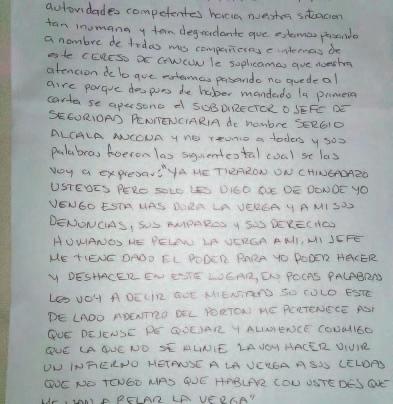 autoridades competentes hacia nuestra situacion
tan inumana y tan degradante que estamos pasando
a nombre de todas mis compañeras e internas de
este CERESO DE CANCUN le suplicamos que nuestra
atencion de lo que estamos pasando no quede al
aire porque despues de haber mandado la primera
carta se apersono el SUBDIRECTOR O JEFE DE
SEGURIDAD PENITENCIARIA de nombre SERGIO
ALCALA ANCONA y nos reunio a todas y sus
palabras fueron las siguientes tal cual se las
voy a expresar: "YA ME TIRARON UN CHINGADAZO
USTEDES PERO SOLO LES DIGO QUE DE DONDE YO
VENGO ESTA MAS DURA LA VERGA Y A MI SUS
DENUNCIAS, SUS AMPAROS y SUS DERECHOS
HUMANOS ME PELAN LA VERGA A MI, MI JEFE
ME TIENE DADO EL PODER PARA YO PODER HACER
Y DESHACER EN ESTE LUGAR, EN POCAS PALABRAS
LES VOY A DECIR QUE MIENTRAS SU CULO ESTE
DE LADO ADENTRO DEL PORTON ME PERTENECE ASI
QUE DEJENSE DE QUEJAR Y ALINIENCE CONMIGO
QUE LA QUE NO SE ALINIE LA VOY HACER VIVIR
UN INFIERNO METANSE A LA VERGA A SUS CELDAS
QUE NO TENGO MAS QUE HABLAR CON USTEDES QUE
ME VAN A PELAR LA VERGA"